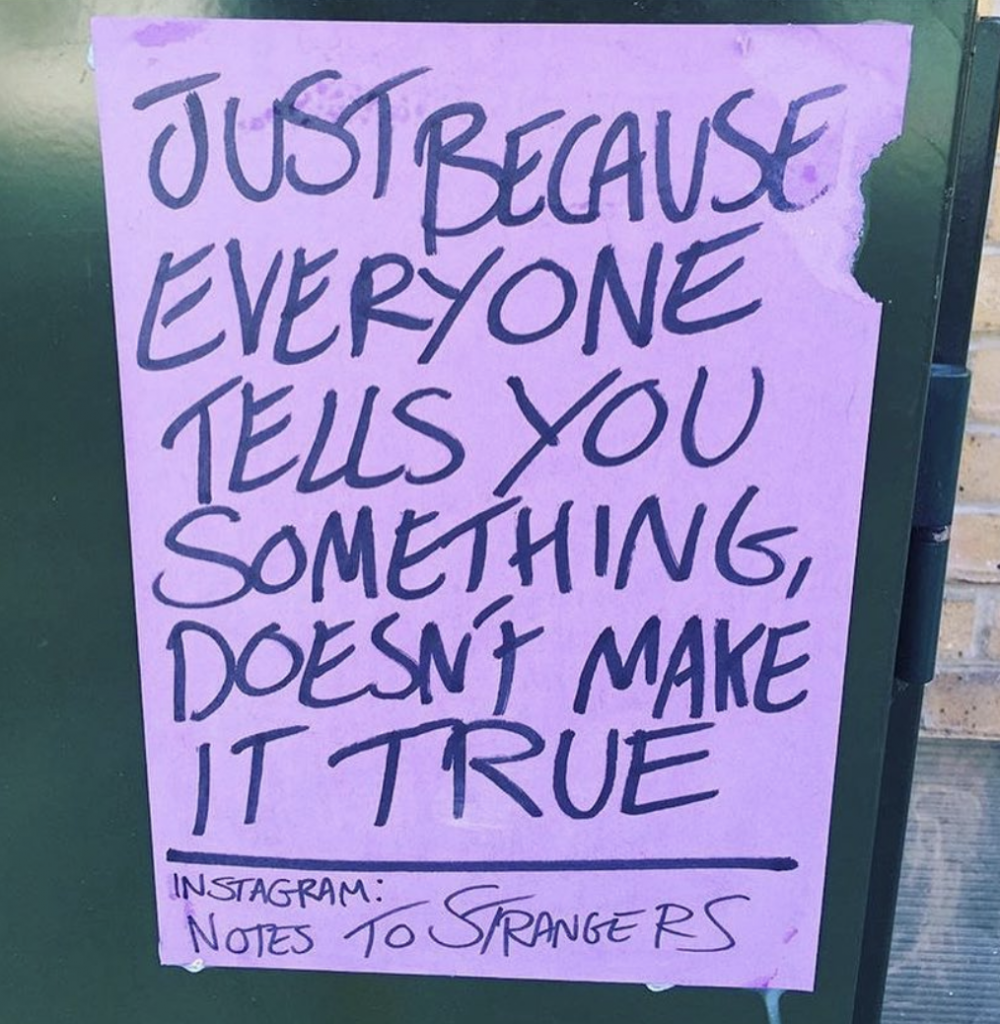 JUST BECAUSE
EVERYONE
TELLS YOU
SOMETHING,
DOESN'T MAKE
IT TRUE
INSTAGRAM:
NOTES TO STRANGERS